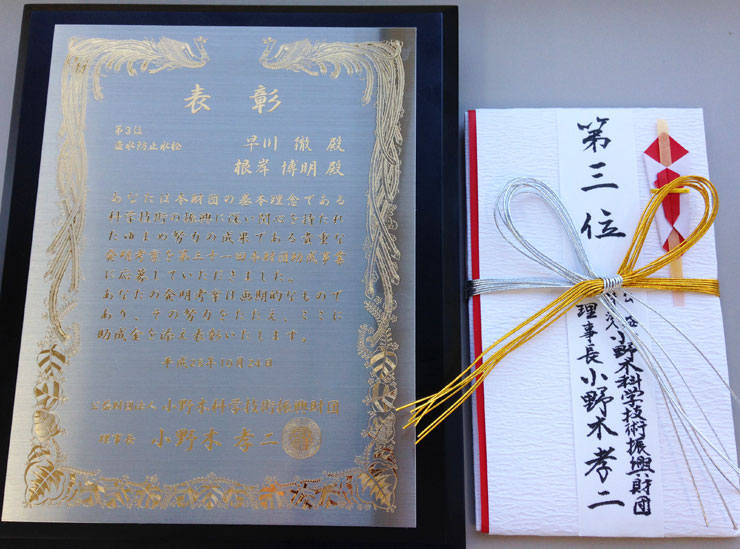 表彰
第3位
盗水防止水栓
早川 徹 殿
根岸 博明 殿
あなたは本財団の基本理念である
科学技術の振興に深い関心を持たれ
たゆまぬ努力の成果である貴重な
発明考案を第三十一回本財団助成事業
に応募していただきました。
あなたの発明考案は画期的なもので
あり、その努力をたたえ、ここに
助成金を添え表彰いたします。
公益財団法人 小野木科学技術振興財団
理事長 小野木 孝二
第三位
小野木科学技術振興財団
理事長 小野木孝二